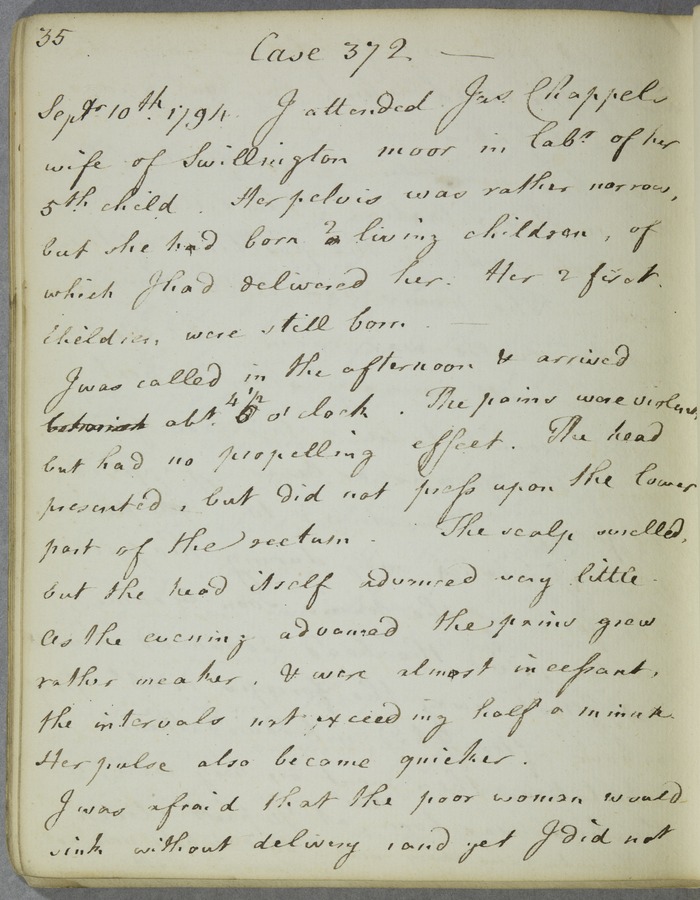 35
Case 372 —
Septr 10th. 1794. I attended Jas. Chappels
wife of Swillington moor in labr. of her
5th child. Her pelvis was rather narrow,
but she had born 2 living children, of
which I had delivered her. Her 2 first
children, were still born. —
I was called in the afternoon & arrived
abt. 4 1/2 o'clock. The pains were violent,
but had no propelling effect. The head
presented, but did not press upon the lower
part of the rectum. The scalp swelled,
but the head itself advanced very little.
As the evening advanced the pains grew
rather weaker, & were almost incessant,
the intervals not exceeding half a minute.
Her pulse also became quicker.
I was afraid that the poor woman would
sink without delivery, and yet I did not